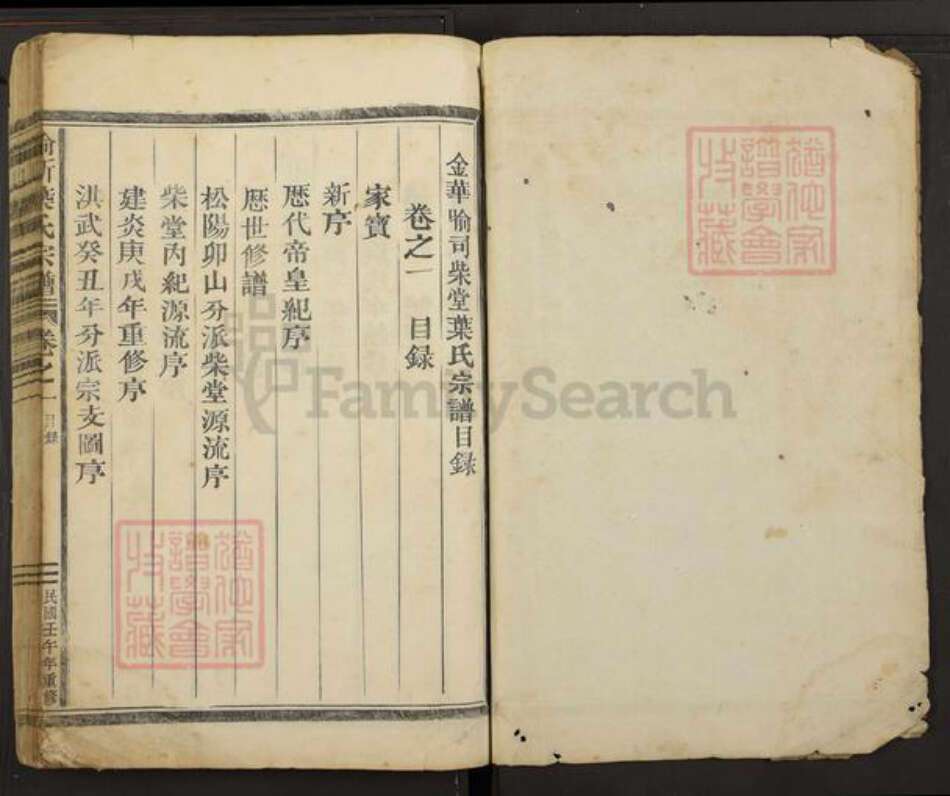 金華喻司柴堂葉氏宗譜目録
卷之一　目録
家寶
新序
歴代帝皇紀序
歴世修譜
松陽卯山分派柴堂源流序
柴堂丙紀源流序
建炎庚戌年重修序
洪武癸丑年分派宗支圖序
葉氏宗譜
卷之一
目録
民國壬午年重修
譜學會
收藏
譜學會
收藏
FamilySearch